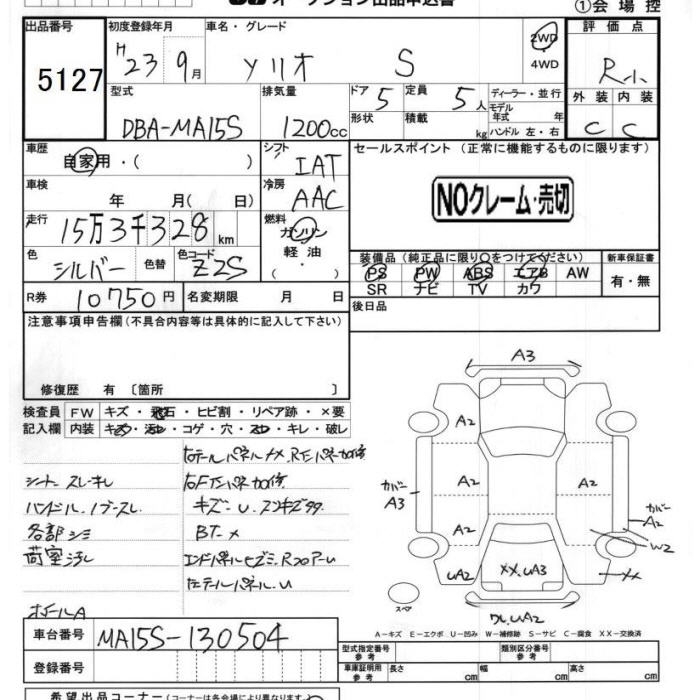 オークション出品申込書
①会場控
出品番号 初度登録年月 車名・グレード 評価点
5127
H23 9月 ソリオ S 2WD
4WD
R小
型式 排気量 ドア 5 定員 5人 ディーラー・並行 外装 内装
モデル年式 年
DBA-MA15S 1200cc 形状 積載 kg ハンドル 左・右 C C
車歴 自家用・( ) シフト IAT セールスポイント (正常に機能するものに限ります)
車検 年 月( 日) 冷房 AAC
NOクレーム・売切
走行 15万3千328km 燃料 ガソリン
軽油
・( )
色 シルバー 色替 色コード Z2S 装備品 (純正品に限り○をつけてください) 新車保証書
PS PW ABS エアB AW
SR ナビ TV カワ 有・無
R券 10750円 名変期限 月 日 後日品
注意事項申告欄 (不具合内容等は具体的に記入して下さい)
修復歴 有 〔箇所 〕
検査員 FW キズ・飛石・ヒビ割・リペア跡・×要
記入欄 内装 キズ・汚れ・コゲ・穴・スレ・キレ・破レ
シート スレ・キレ
ハンドル、ノブスレ
各部シミ
荷室汚れ
ホイールA
BT-×
A3
A2
A2
A2
A2
カバー
A3
カバー
A2
W2
UA2
XX,UA3
XX
スペア
A-キズ E-エクボ U-凹み W-補修跡 S-サビ C-腐食 XX-交換済
車台番号 MA15S-130504
登録番号
型式指定番号 参考 類別区分番号 参考
車庫証明用 参考 長さ cm 幅 cm 高さ cm
希望出品コーナー (コーナーは各会場により異なります)